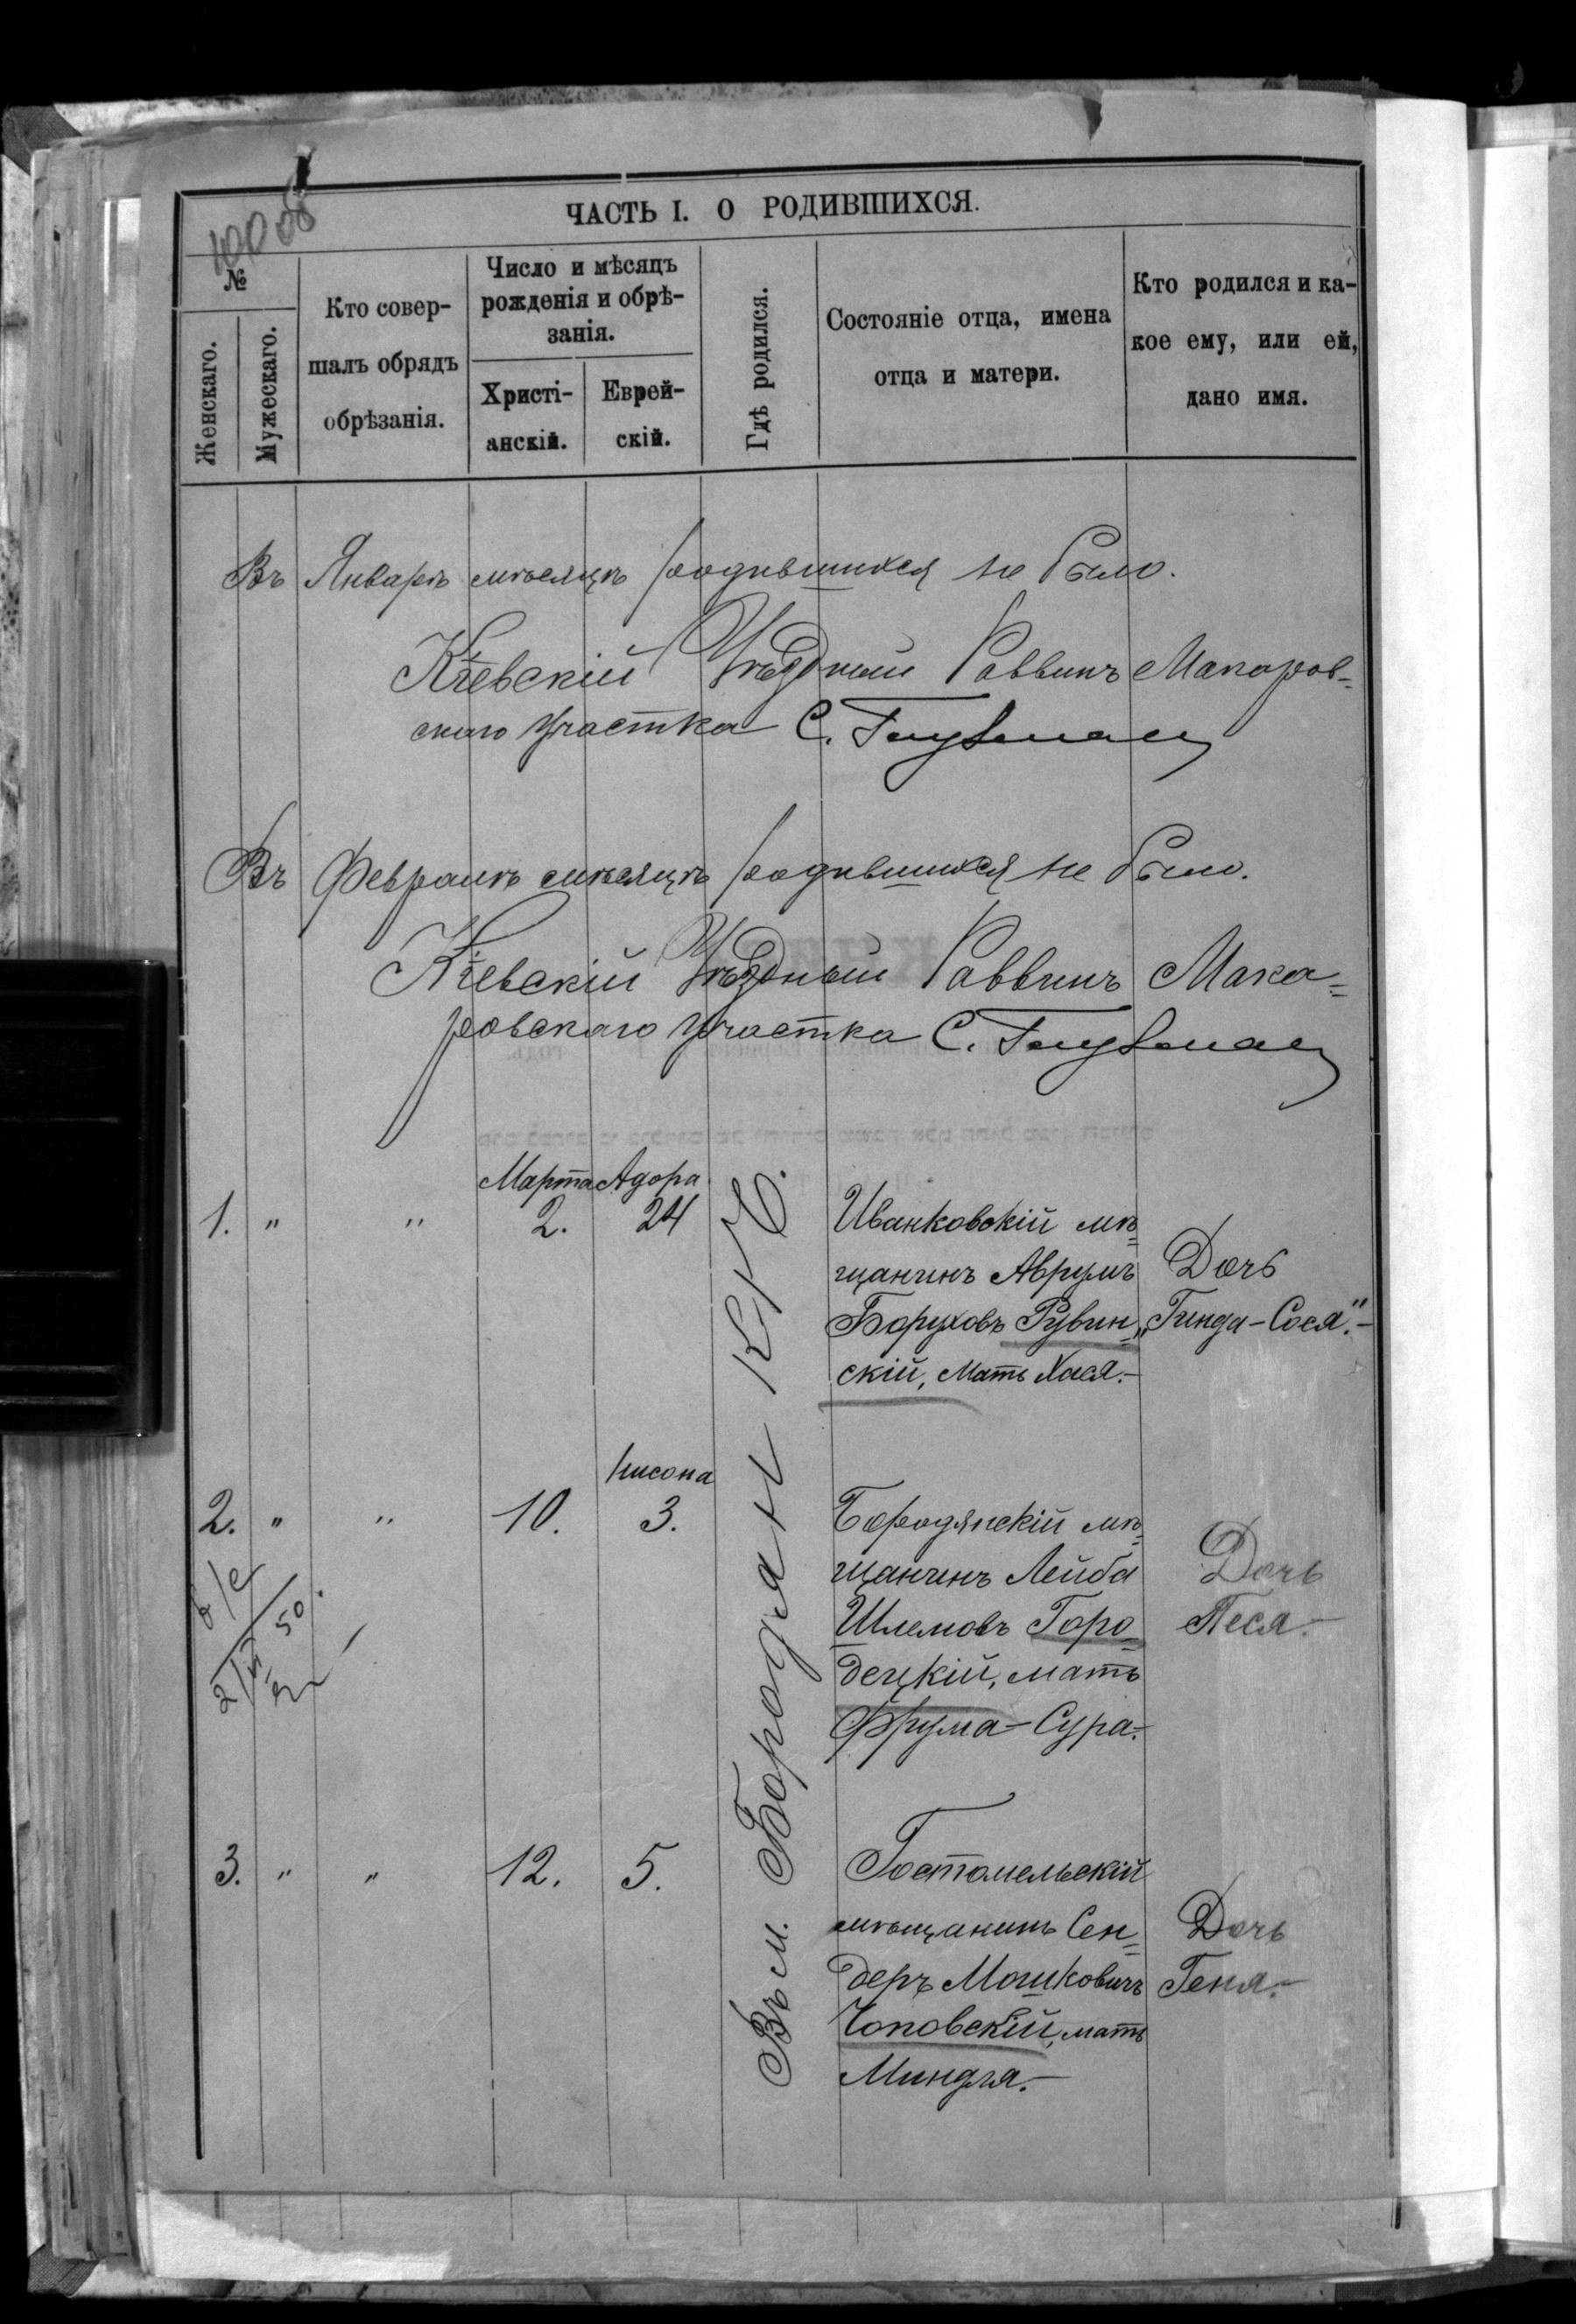 ЧАСТЬ I. О РОДИВШИХСЯ.
№
Женскаго.
Мужескаго.
Кто совер-
шалъ обрядъ
обрѣзанія.
Число и мѣсяцъ
рожденія и обрѣ-
занія.
Христі-
анскій.
Еврей-
скій.
Гдѣ родился.
Состояніе отца, имена
отца и матери.
Кто родился и ка-
кое ему, или ей,
дано имя.
Въ Январѣ мѣсяцѣ родившихся не было.
Кіевскій Уѣздный Раввинъ Макаров=
скаго участка С.
Въ Февралѣ мѣсяцѣ родившихся не было.
Кіевскій Уѣздный Раввинъ Мака=
ровскаго участка С.
Марта Адора
1. " " 2. 24
Иванковскій мѣ=
щанинъ Аврумъ
Боруховъ Рувин=
скій, Мать Хася.-
Дочь
„Гинда-Сося".-
Нисона
2. " " 10. 3.
Бородянскій мѣ=
щанинъ Лейба
Шлемовъ Горо=
децкій, мать
Фрума-Сура.-
Дочь
Песя.-
3. " " 12. 5.
Гостомельскій
мѣщанинъ Сен=
деръ Мошковичъ
Чоповскій, мать
Миндля.-
Дочь
Геня.-
Въ м. Бородянкѣ